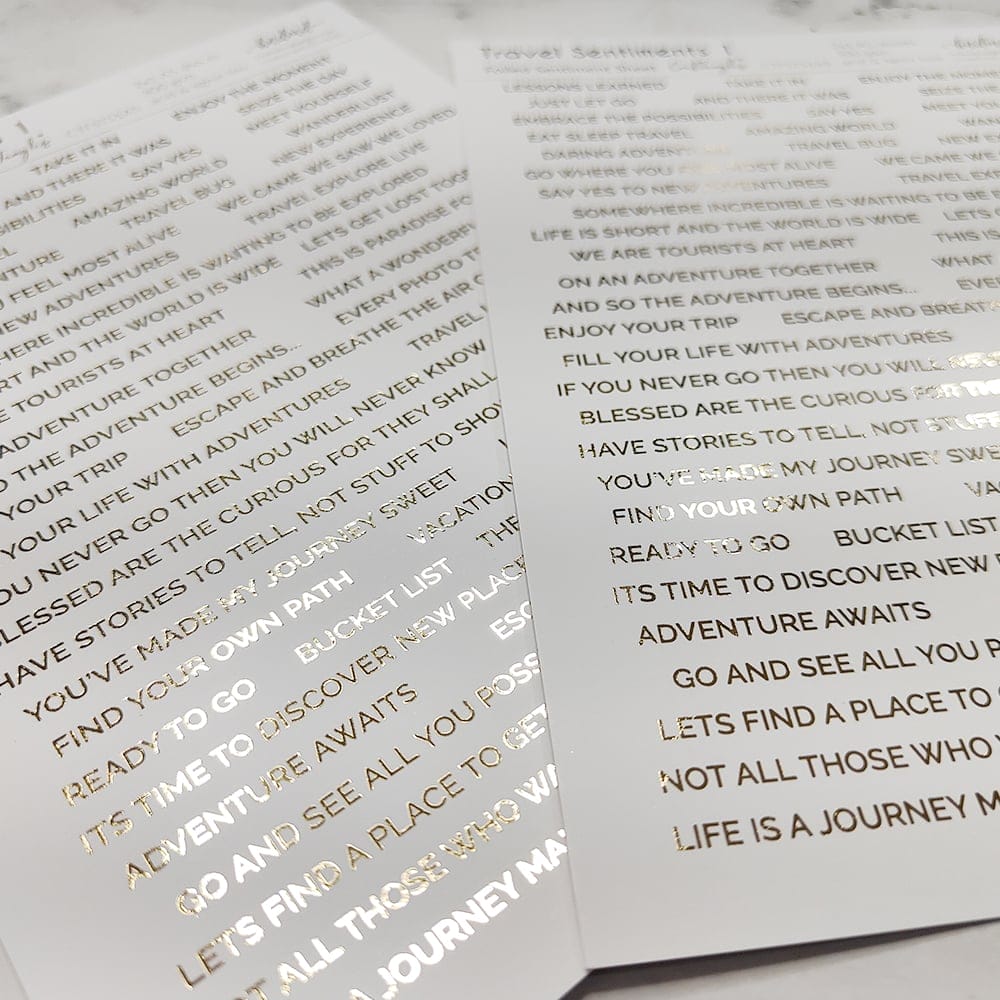 TAKE IT IN
ENJOY THE MOMENT
AND THERE IT WAS
SEIZE THE DAY
SAY YES
MEET YOURSELF
AMAZING WORLD
WANDERLUST
TRAVEL BUG
NEW EXPERIENCE
WE CAME WE SAW WE LOVED
FEEL MOST ALIVE
TRAVEL EXPLORE LIVE
NEW ADVENTURES
INCREDIBLE IS WAITING TO BE EXPLORED
AND THE WORLD IS WIDE
LETS GET LOST
TOURISTS AT HEART
THIS IS PARADISE
ADVENTURE TOGETHER
WHAT A
THE ADVENTURE BEGINS...
EVERY PHOTO
YOUR TRIP
ESCAPE AND BREATHE THE AIR
YOUR LIFE WITH ADVENTURES
TRAVEL
NEVER GO THEN YOU WILL NEVER KNOW
BLESSED ARE THE CURIOUS FOR THEY SHALL
HAVE STORIES TO TELL, NOT STUFF TO
YOU'VE MADE MY JOURNEY SWEET
VACATION
FIND YOUR OWN PATH
THE
READY TO GO
BUCKET LIST
ITS TIME TO DISCOVER NEW
ADVENTURE AWAITS
GO AND SEE ALL YOU
LETS FIND A PLACE TO GET
ALL THOSE WHO
JOURNEY
Travel Sentiments 1
LESSONS LEARNED
TAKE IT IN
ENJOY THE
JUST LET GO
AND THERE IT WAS
SEIZE
EMBRACE THE POSSIBILITIES
SAY YES
MEET
EAT SLEEP TRAVEL
AMAZING WORLD
DARING ADVENTURE
TRAVEL BUG
GO WHERE YOU FEEL MOST ALIVE
WE CAME WE
SAY YES TO NEW ADVENTURES
TRAVEL
SOMEWHERE INCREDIBLE IS WAITING TO BE
LIFE IS SHORT AND THE WORLD IS WIDE
LETS
WE ARE TOURISTS AT HEART
THIS IS
ON AN ADVENTURE TOGETHER
WHAT
AND SO THE ADVENTURE BEGINS...
ENJOY YOUR TRIP
ESCAPE AND
FILL YOUR LIFE WITH ADVENTURES
IF YOU NEVER GO THEN YOU WILL
BLESSED ARE THE CURIOUS FOR
HAVE STORIES TO TELL, NOT STUFF
YOU'VE MADE MY JOURNEY
FIND YOUR OWN PATH
READY TO GO
BUCKET LIST
ITS TIME TO DISCOVER NEW
ADVENTURE AWAITS
GO AND SEE ALL YOU
LETS FIND A PLACE TO
NOT ALL THOSE WHO
LIFE IS A JOURNEY